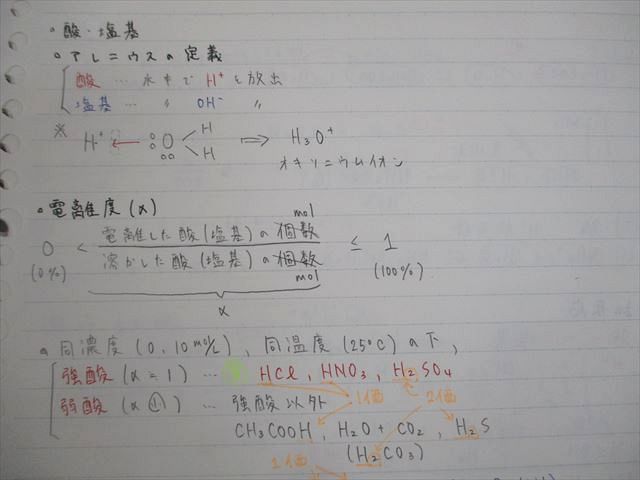 。酸・塩基
。アレニウスの定義
酸 … 水中で H⁺を放出
塩基 … 〃 OH⁻ 〃
※ H⁺ ← O H H ⇒ H₃O⁺
オキソニウムイオン
。電離度 (α)
mol
0 < 電離した酸(塩基)の個数 / 溶かした酸(塩基)の個数 ≤ 1
(0%) (100%)
mol
α
。同濃度 (0.10 mol/L), 同温度 (25℃) の下,
強酸 (α = 1) … HCl, HNO₃, H₂SO₄
弱酸 (α ≪ 1) … 強酸以外 1価 2価
CH₃COOH, H₂O + CO₂, H₂S
(H₂CO₃)
1価